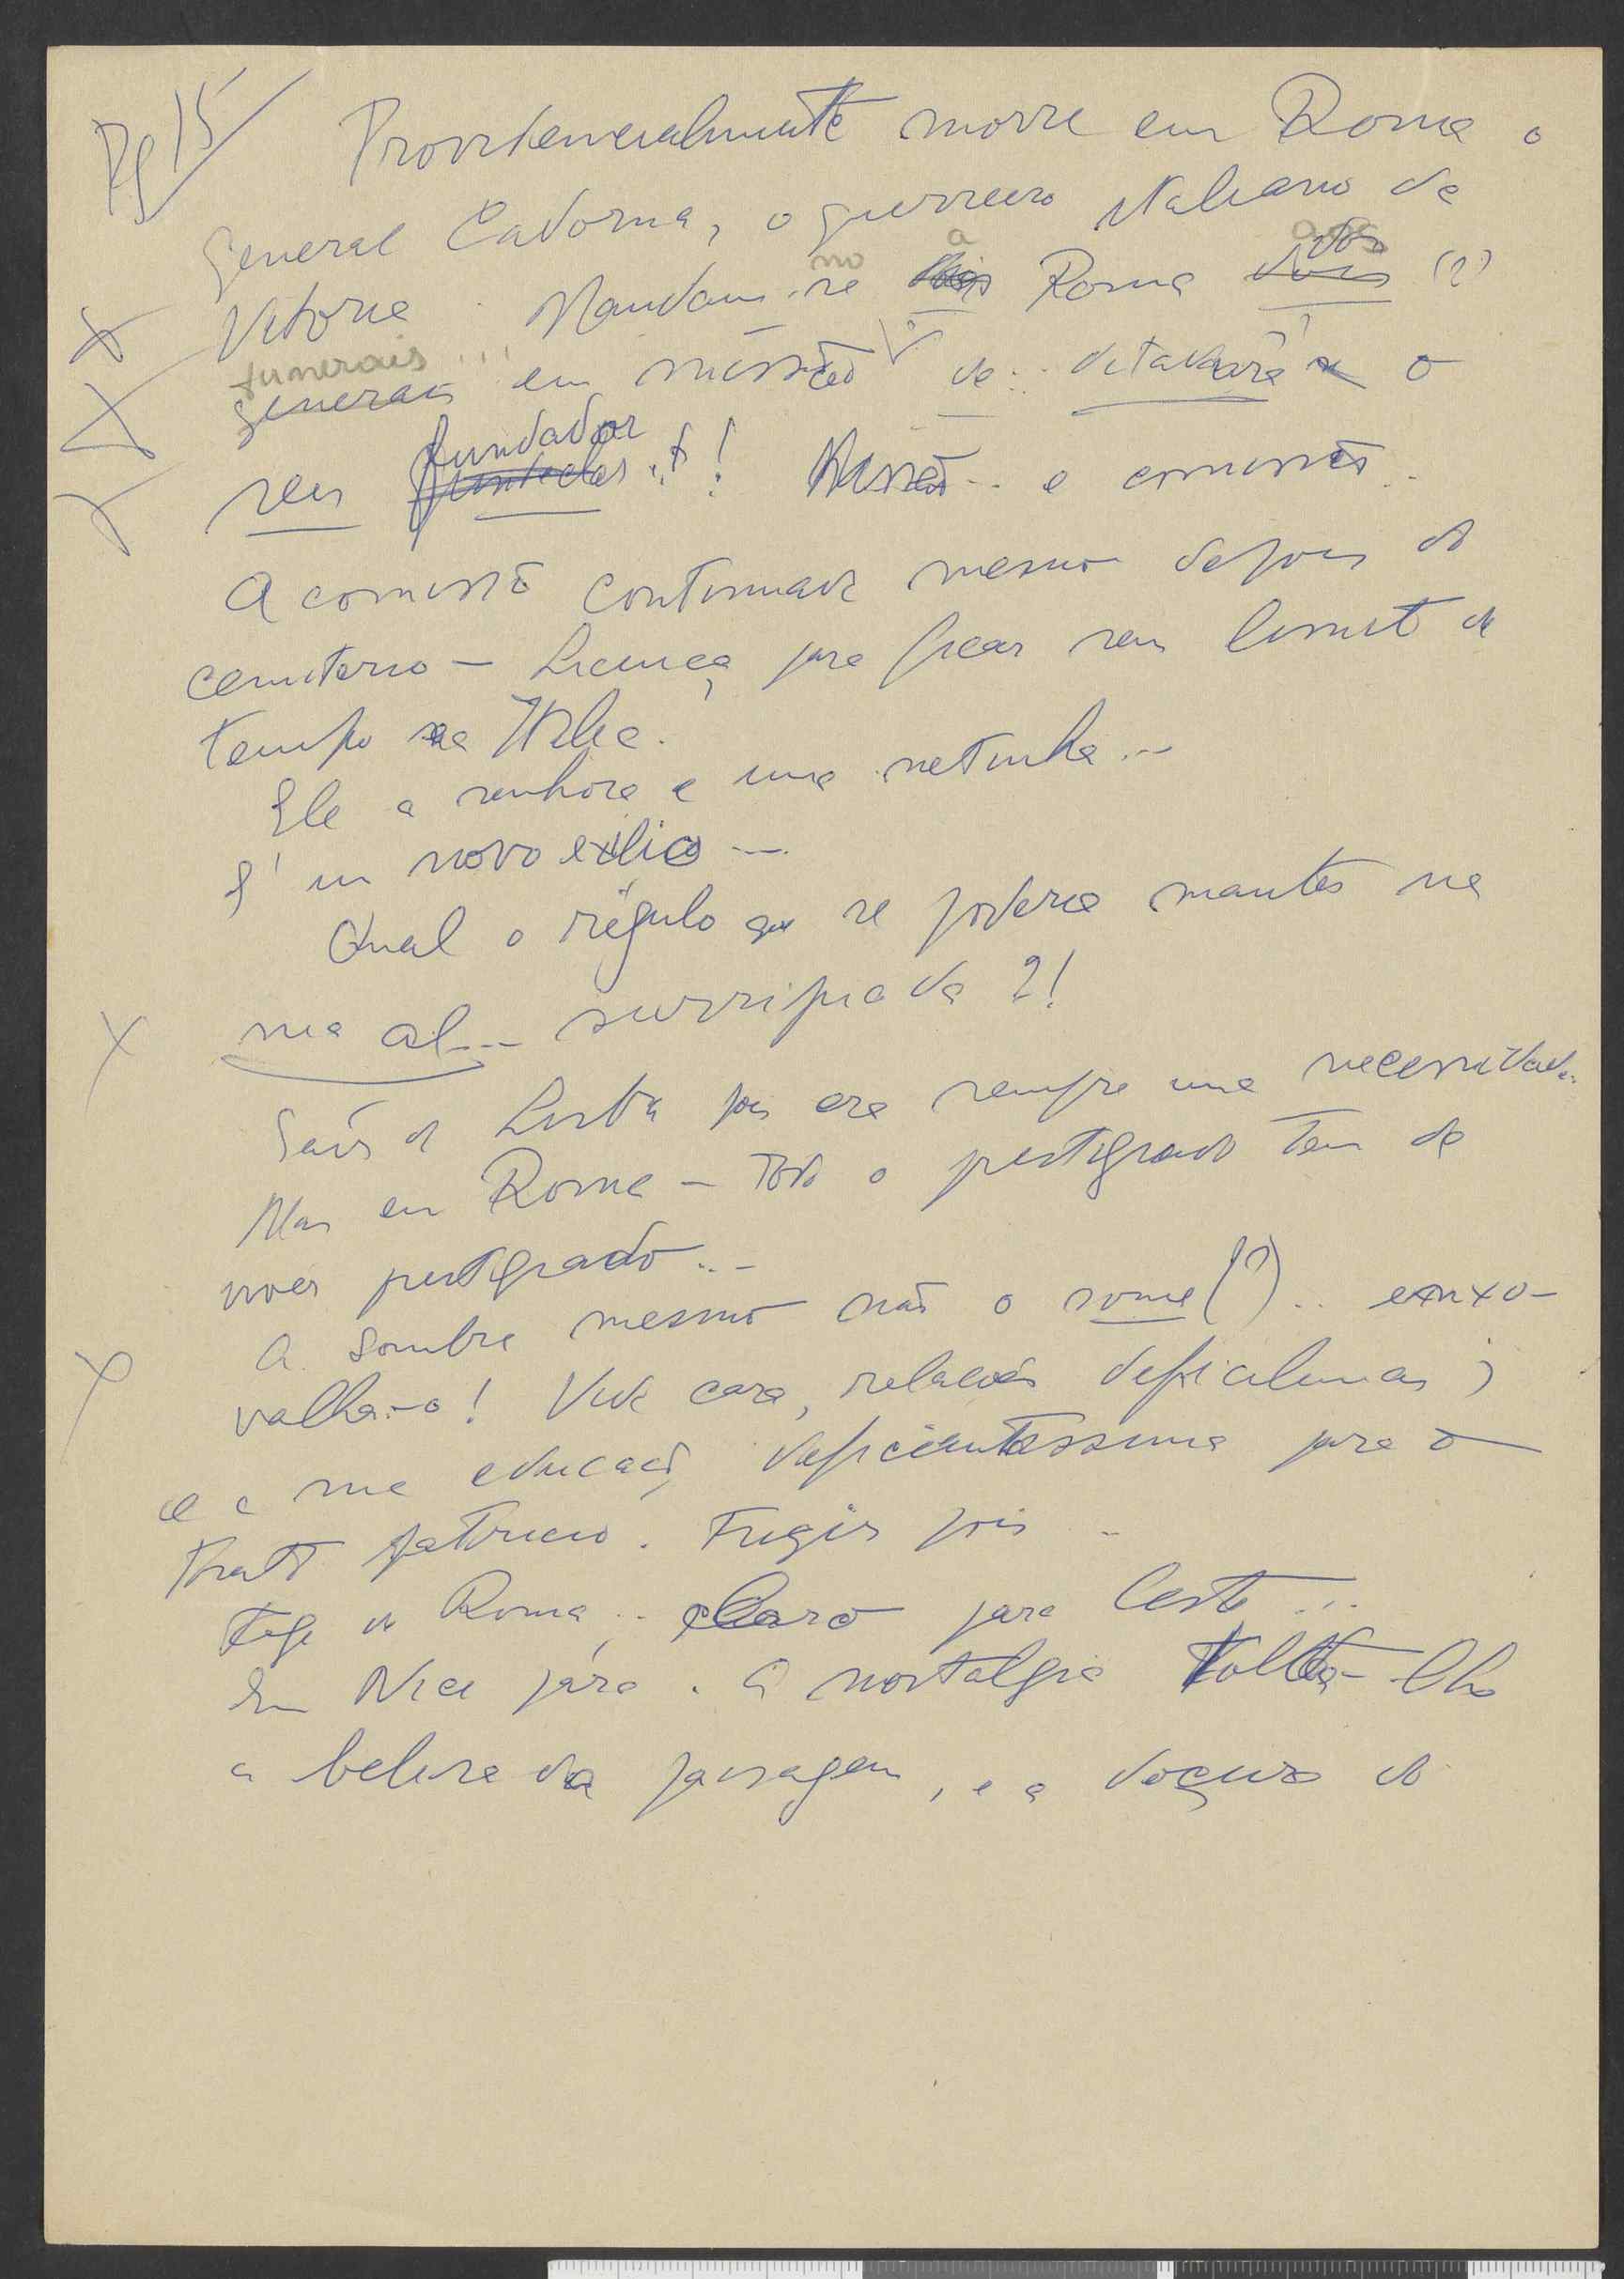 Pg 15
Providencialmente morre em Roma o
General Cadorna, o guerreiro italiano da
no a aos dos
Vitoria. Mandam-se Roma dois (?)
funerais...
generais em missão de.. o
fundador
seu ..! Missão.. e comissão..
A comissão continuava mesmo depois do
cemiterio – Licença para ficar sem limite de
tempo na Italia.
Ele a senhora e uma netinha...
E' um novo exilio ....
Qual o régulo que se poderia manter na
sua al... surripiada ?!
Sair de Lisboa pois era sempre uma necessidade.
Mas em Roma – Todo o prestigiado tem de
viver prestigiado...
A sombra mesmo não o some (?).. enxo-
valha-o! Vida cara, relações dificilimas;
e a sua educação deficientissima para o
trato patricio. Fugir pois..
Foge de Roma .. claro para Leste ...
Em Nice pára. A nostalgia volta-lhe
a beleza da paisagem, e a doçura do